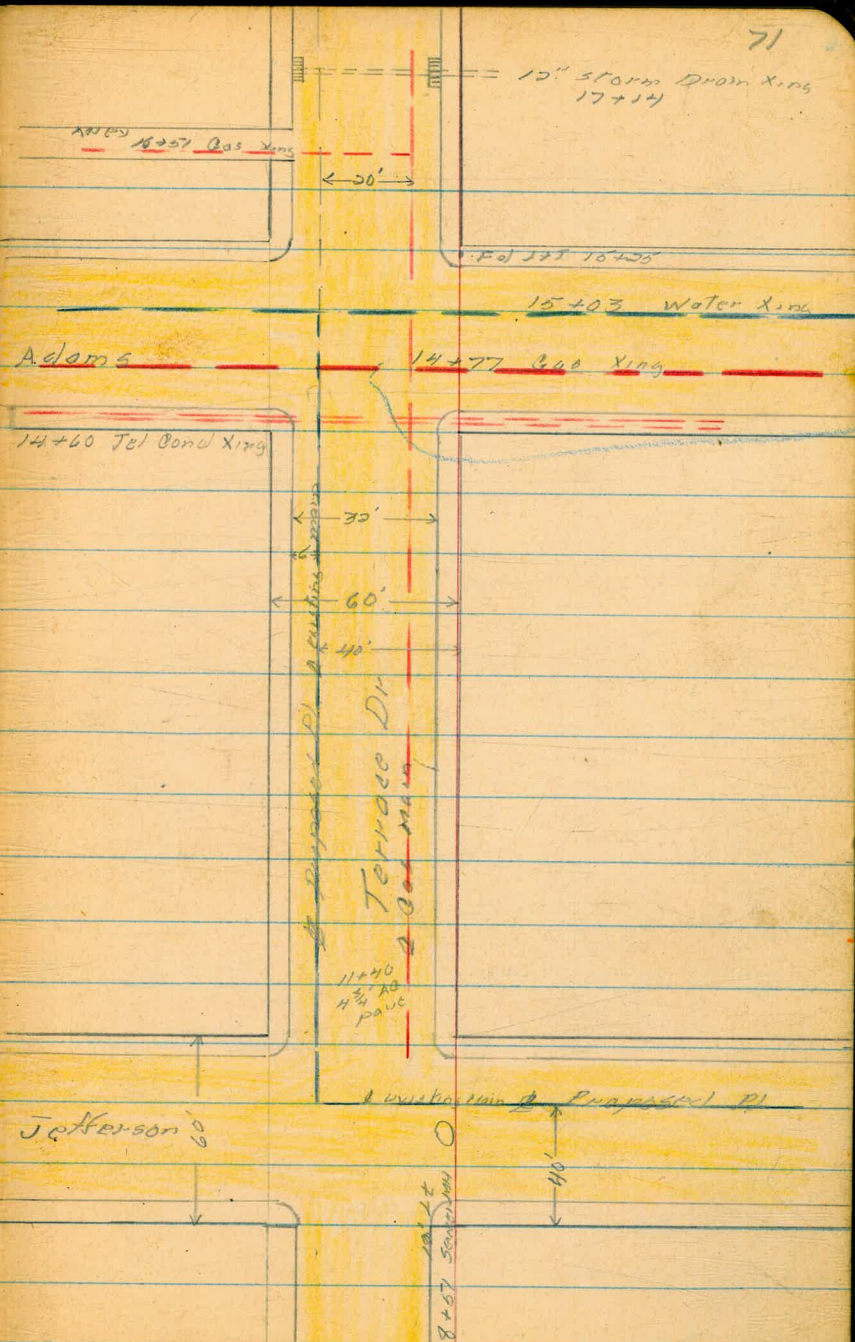 71
12" Storm Drain Xing
17+14
16+51 Gas Xing
20'
Fd 15+25
15+03 Water Xing
Adams
14+77 Gas Xing
14+60 Tel Cond Xing
32'
60'
± 40'
℄ Proposed Pl ℄ existing main
Terrace Dr
℄ Gas Main
11+40
4 3/4" AC
pavt
℄ existing main ℄ Proposed Pl
Jefferson
60'
40'
8+51 Sewer MH